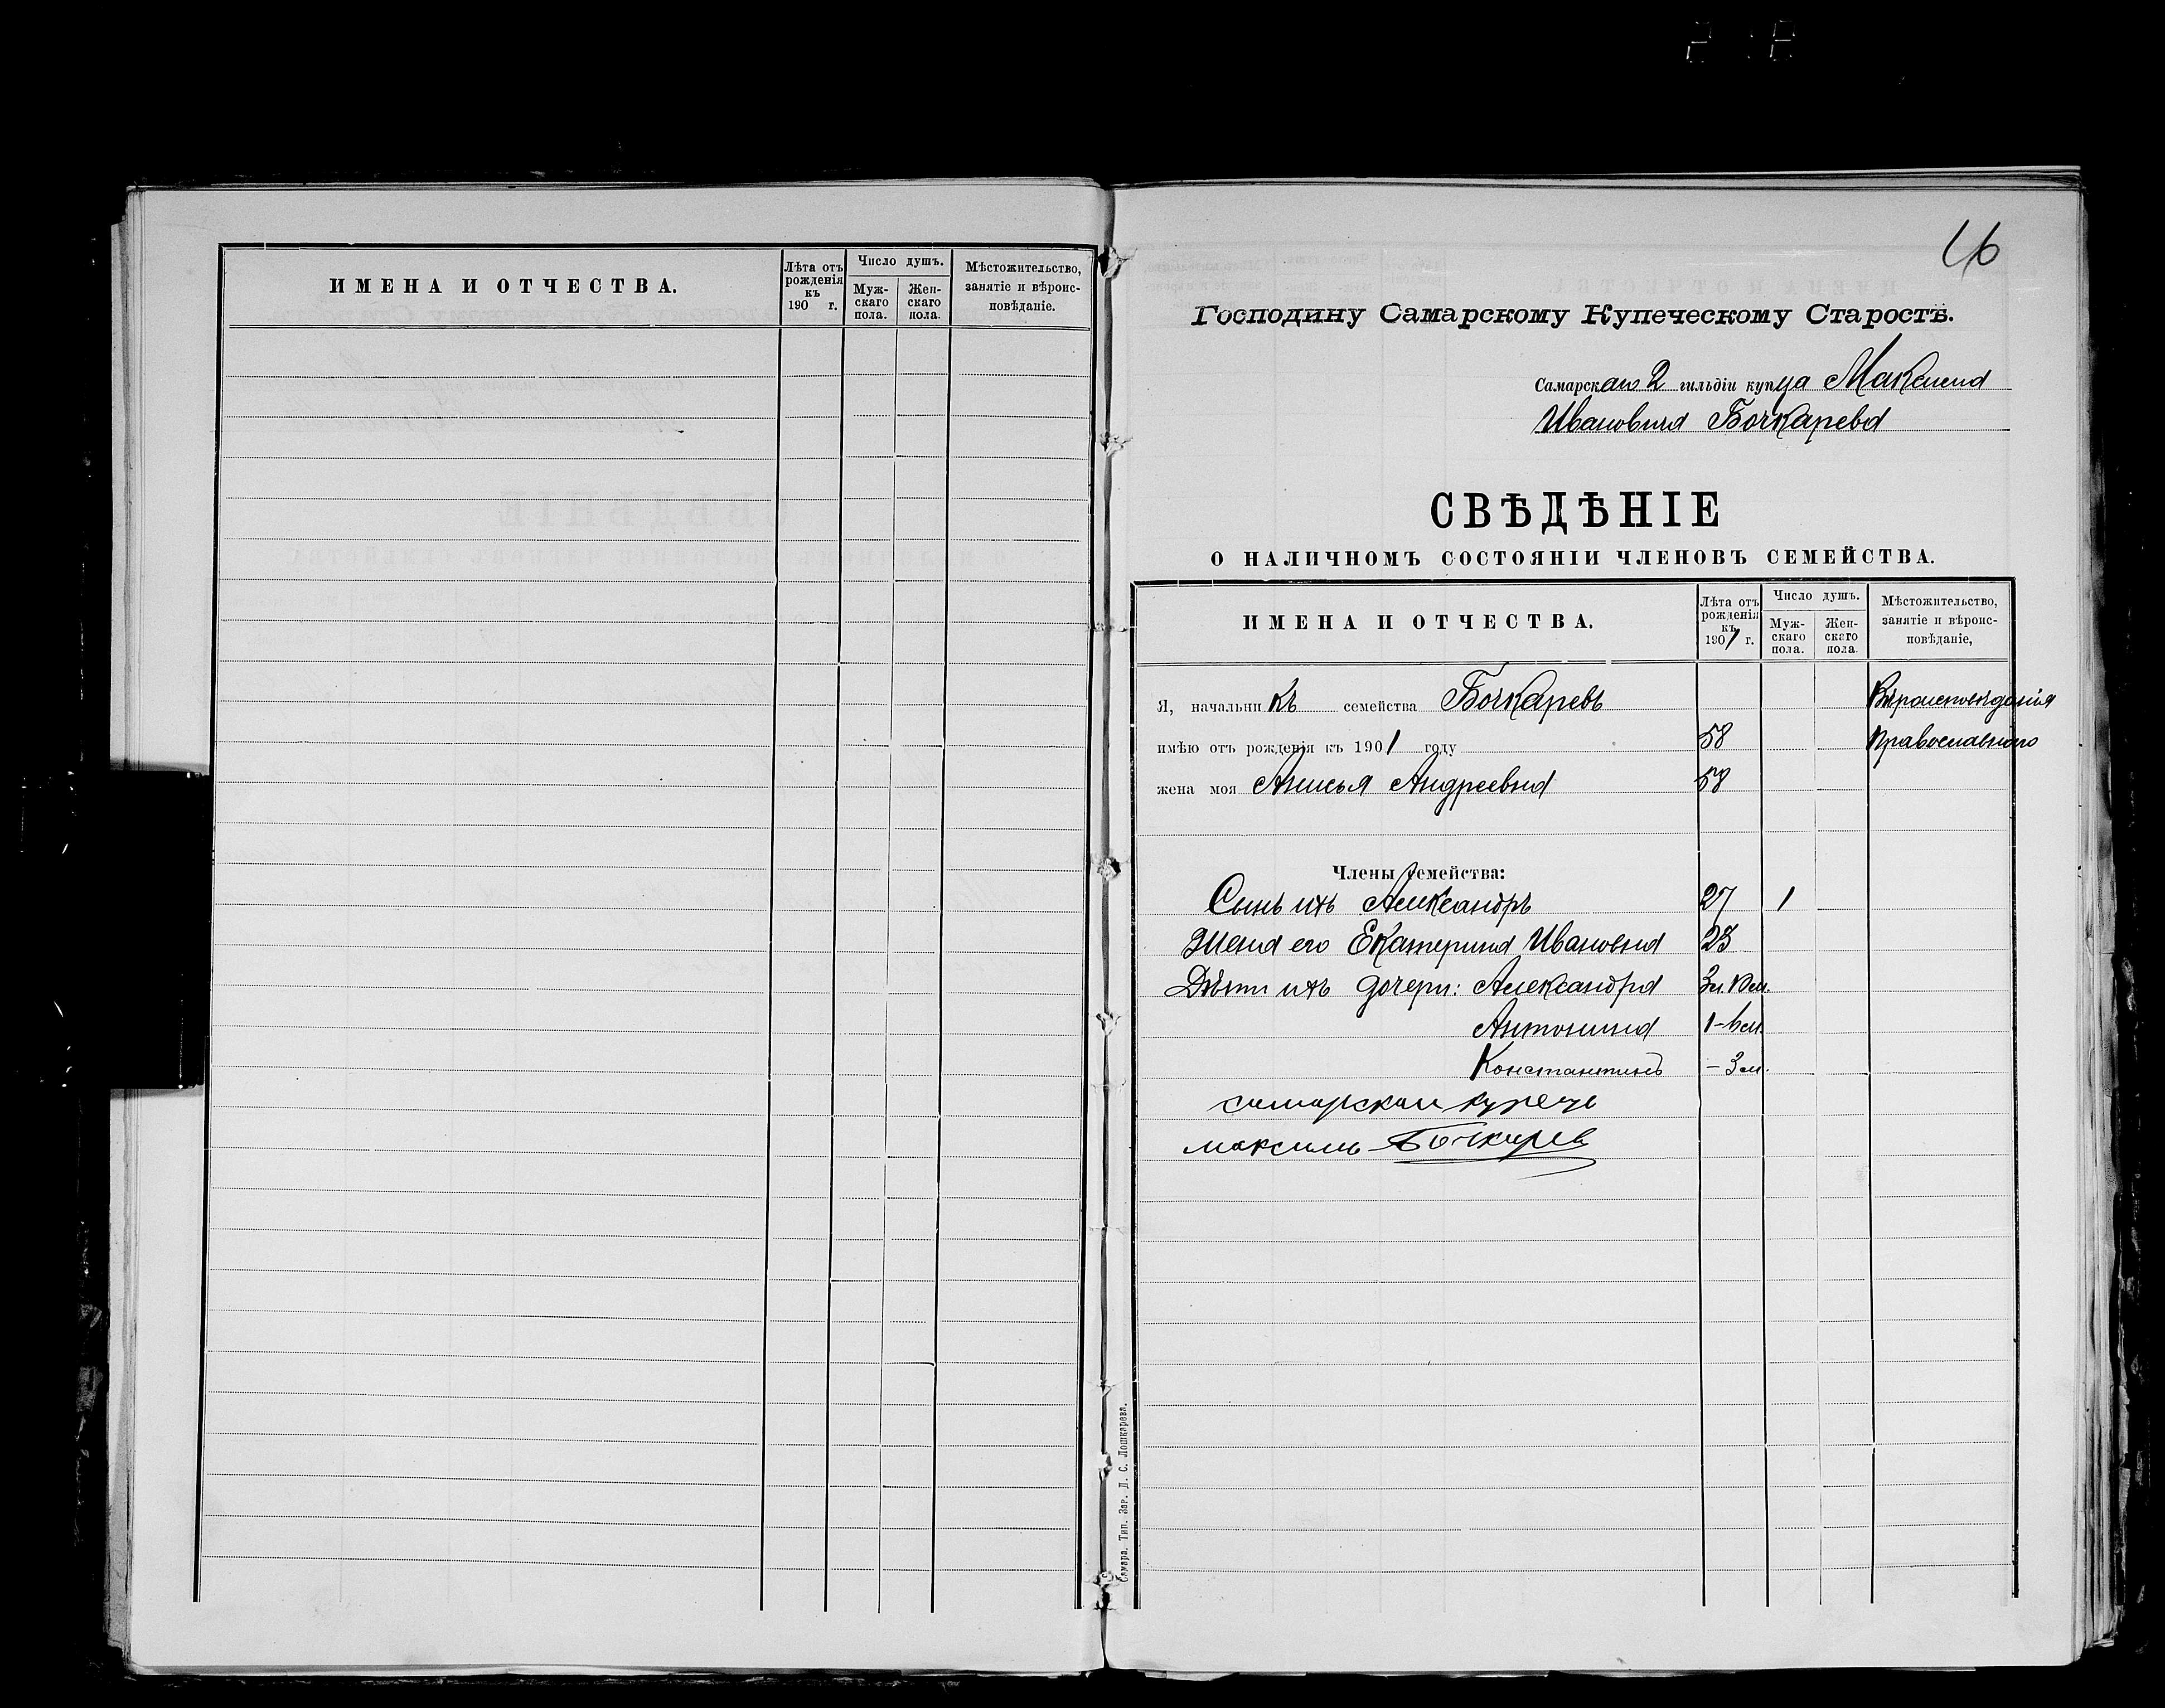 ИМЕНА И ОТЧЕСТВА.
Лѣта отъ рожденія къ 190 г.
Число душъ.
Мужскаго пола.
Женскаго пола.
Мѣстожительство, занятіе и вѣроисповѣданіе.
46
Господину Самарскому Купеческому Старостѣ.
Самарскаго 2 гильдіи купца Максима
Ивановича Бочкарева
СВѢДѢНІЕ
О НАЛИЧНОМЪ СОСТОЯНІИ ЧЛЕНОВЪ СЕМЕЙСТВА.
ИМЕНА И ОТЧЕСТВА.
Лѣта отъ рожденія къ 1901 г.
Число душъ.
Мужскаго пола.
Женскаго пола.
Мѣстожительство, занятіе и вѣроисповѣданіе,
Я, начальникъ семейства Бочкаревъ Вѣроисповѣданія
имѣю отъ рожденія къ 1901 году 58 Православнаго
жена моя Анисья Андреевна 58
Члены семейства:
Сынъ ихъ Александръ 27 1
Жена его Екатерина Ивановна 25
Дѣти ихъ дочери: Александра 3л.
Антонина 1-6м.
Константинъ - 3м.
самарскаи купецъ
максимъ Бочкарев
Самара. Тип. Зар. Л. С. Лошкарева.